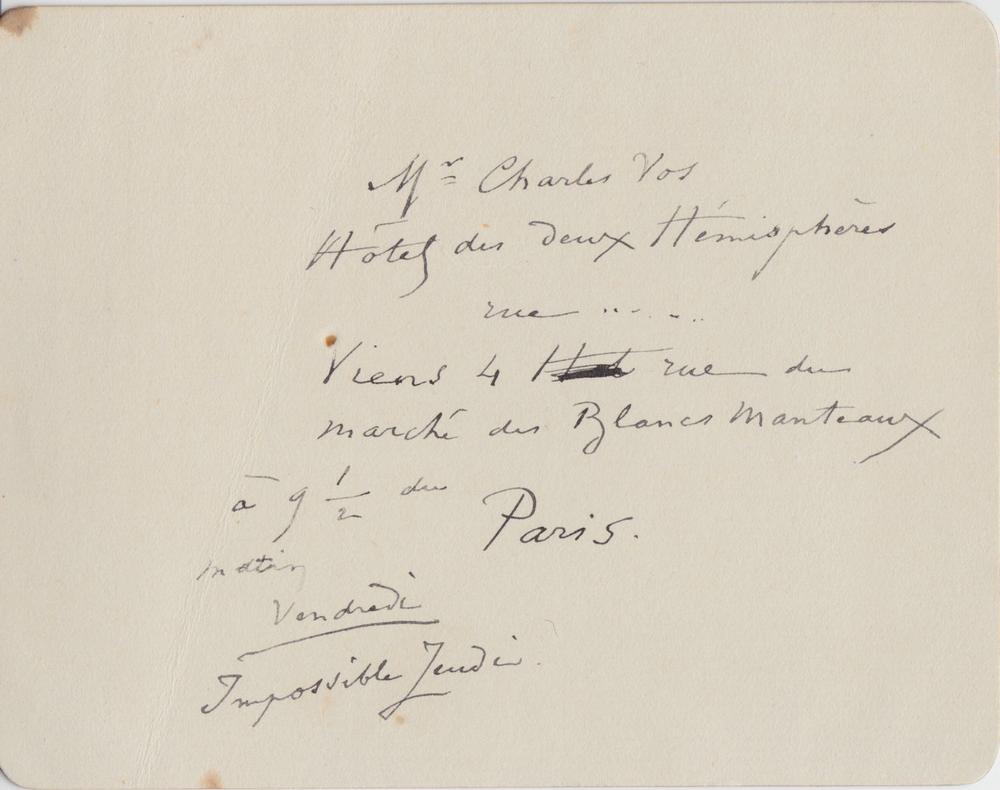 Mr Charles Vos
Hôtel des deux Hémisphères
rue ......
Viens 4 rue du
marché des Blancs Manteaux
à 9 1/2 du
Paris.
matin
Vendredi
Impossible Jeudi.